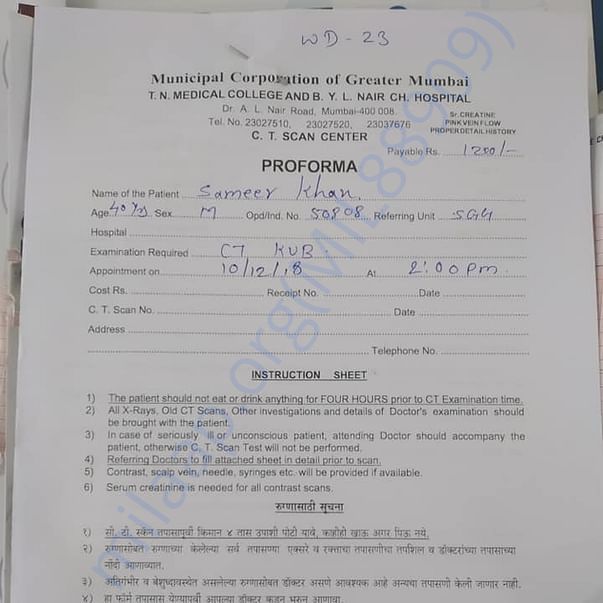 WD - 23
Municipal Corporation of Greater Mumbai
T. N. MEDICAL COLLEGE AND B. Y. L. NAIR CH. HOSPITAL
Dr. A. L. Nair Road, Mumbai-400 008.
Tel. No. 23027510, 23027520, 23037676
C. T. SCAN CENTER
Sr. CREATINE
PINK VEIN FLOW
PROPER DETAIL HISTORY
Payable Rs. 1200/-
PROFORMA
Name of the Patient Sameer Khan.
Age 40 yrs Sex M Opd/Ind. No. 50808 Referring Unit SGH
Hospital
Examination Required CT KUB.
Appointment on 10/12/18 At 2:00 pm.
Cost Rs. Receipt No. Date
C. T. Scan No. Date
Address
Telephone No.
INSTRUCTION SHEET
1) The patient should not eat or drink anything for FOUR HOURS prior to CT Examination time.
2) All X-Rays, Old CT Scans, Other investigations and details of Doctor's examination should
be brought with the patient.
3) In case of seriously ill or unconscious patient, attending Doctor should accompany the
patient, otherwise C. T. Scan Test will not be performed.
4) Referring Doctors to fill attached sheet in detail prior to scan.
5) Contrast, scalp vein, needle, syringes etc. will be provided if available.
6) Serum creatinine is needed for all contrast scans.
रुग्णासाठी सूचना
१) सी. टी. स्कॅन तपासापूर्वी किमान ४ तास उपाशी पोटी यावे, काहीही खाऊ अगर पिऊ नये.
२) रुग्णासोबत रुग्णाच्या केलेल्या सर्व तपासण्या एक्सरे व रक्ताचा तपासणीचा तपशिल व डॉक्टरांच्या तपासाच्या
नोंदी आणाव्यात.
३) अतिगंभीर व बेशुध्दावस्थेत असलेल्या रुग्णासोबत डॉक्टर असणे आवश्यक आहे अन्यथा तपासणी केली जाणार नाही.
४) हा फॉर्म तपासास येण्यापूर्वी आपल्या डॉक्टर कडून भरून आणावा.
milaap.org(MIL88909)